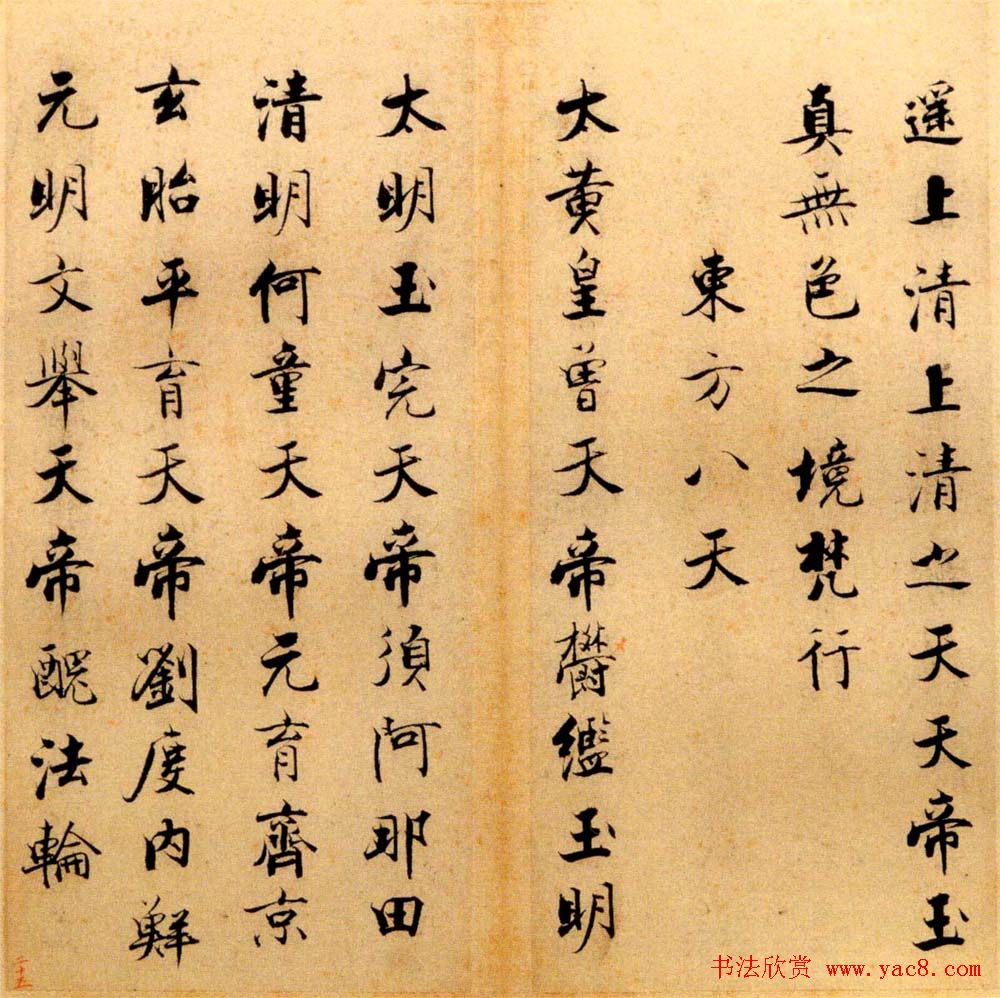 遥上清上清之天天帝玉
真無色之境梵行
東方八天
太黄皇曾天帝欝繿玉明
太明玉完天帝須阿那田
清明何童天帝元育齊京
玄胎平育天帝劉度內鮮
元明文舉天帝醜法輪
二十五
书法欣赏 www.yac8.com